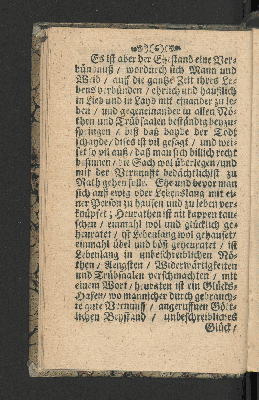 Es ist aber der Ehestand eine Ver-
bündnuß / wordurch sich Mann und
Weib / auff die gantze Zeit ihres Le-
bens verbünden / ehrlich und häußlich
in Lieb und in Layd mit einander zu le-
ben / und gegeneinander in allen Nö-
then und Trübsaalen beständig beyzu-
springen / biß daß beyde der Todt
schayde / dises ist vil gesagt / und wei-
set so vil auß / daß man sich billich recht
besinnen / die Sach wol überlegen / und
mit der Vernunfft bedächtlichist zu
Rath gehen solle. Ehe und bevor man
sich auß ewig oder Lebenslang mit ei-
ner Persohn zu hausen und zu leben ver-
knüpfet; Heurathen ist nit kappen tau-
schen / einmahl wol und glücklich ge-
heuratet / ist Lebenlang wol gehauset /
einmahl übel und böß geheuratet / ist
Lebenlang in unbeschreiblichen Nö-
then / Aengsten / Widerwärtigkeiten
und Trübsaalen verschmachten / mit
einem Wort / heuraten ist ein Glücks-
Hafen / wo mancher durch gebrauch-
te gute Vernunfft / angeruffnen Gött-
lichen Beystand / unbeschreibliches
Glück /